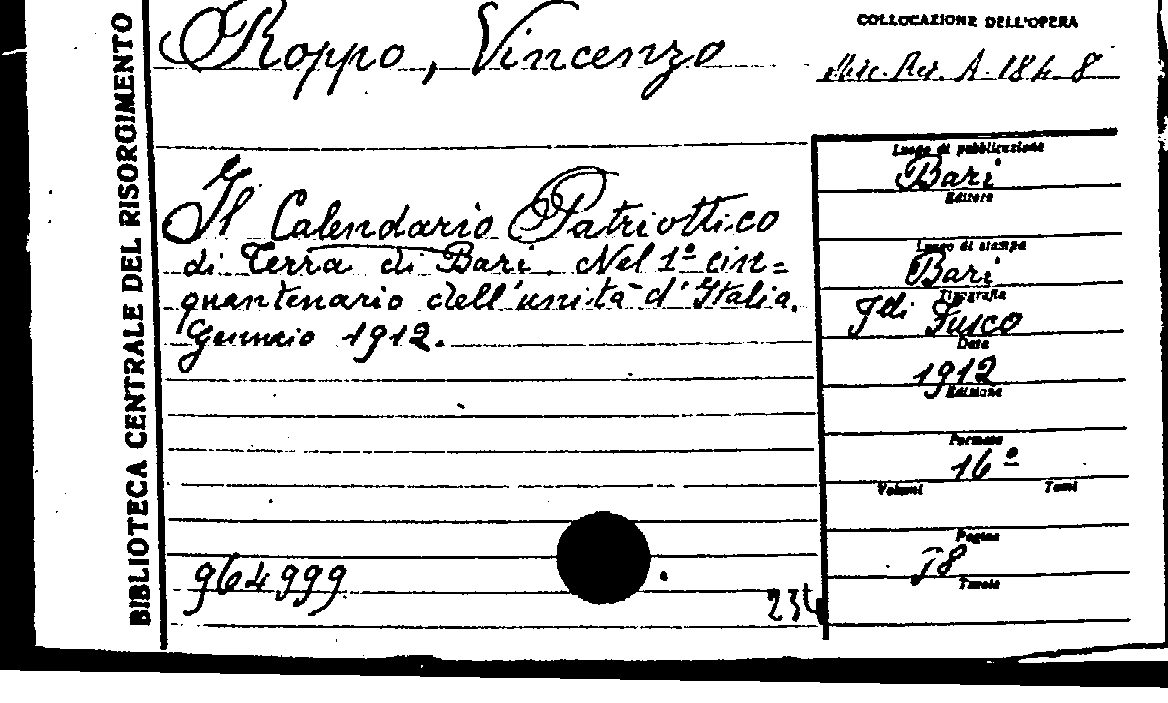 BIBLIOTECA CENTRALE DEL RISORGIMENTO
Roppo, Vincenzo
COLLOCAZIONE DELL'OPERA
A. 184. 8
Il Calendario Patriottico
di Terra di Bari. Nel 1º cin=
quantenario dell'unità d'Italia.
Gennaio 1912.
964999
234
Luogo di pubblicazione
Bari
Editore
Luogo di stampa
Bari
Tipografia
Fdi Fusco
Data
1912
Edizione
Formato
16º
Volumi Tomi
Pagine
78
Tavole